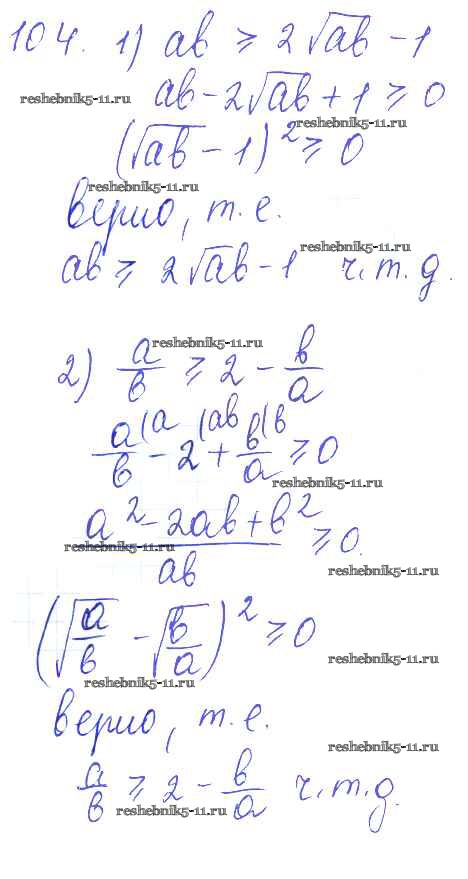 104. 1) ab ≥ 2√ab - 1
reshebnik5-11.ru
ab - 2√ab + 1 ≥ 0
reshebnik5-11.ru
(√ab - 1)² ≥ 0
reshebnik5-11.ru
верно, т.е.
reshebnik5-11.ru
ab ≥ 2√ab - 1 ч.т.д.
reshebnik5-11.ru
2) a/b ≥ 2 - b/a
a/b (a - 2 (ab + b/a (b ≥ 0
reshebnik5-11.ru
(a² - 2ab + b²)/ab ≥ 0.
reshebnik5-11.ru
reshebnik5-11.ru
(√a/b - √b/a)² ≥ 0
reshebnik5-11.ru
reshebnik5-11.ru
верно, т.е.
reshebnik5-11.ru
a/b ≥ 2 - b/a ч.т.д.
reshebnik5-11.ru